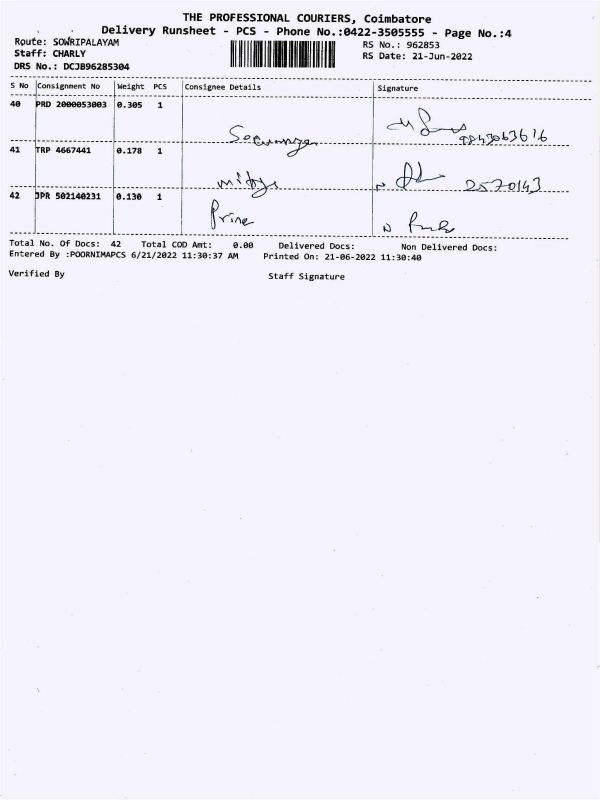 THE PROFESSIONAL COURIERS, Coimbatore
Delivery Runsheet - PCS - Phone No.:0422-3505555 - Page No.:4
Route: SOWRIPALAYAM
Staff: CHARLY
DRS No.: DCJB96285304
RS No.: 962853
RS Date: 21-Jun-2022
S No Consignment No Weight PCS Consignee Details Signature
40 PRD 2000053003 0.305 1
9843063616
41 TRP 4667441 0.178 1
2570143
42 JPR 502140231 0.130 1
Total No. Of Docs: 42 Total COD Amt: 0.00 Delivered Docs: Non Delivered Docs:
Entered By :POORNIMAPCS 6/21/2022 11:30:37 AM Printed On: 21-06-2022 11:30:40
Verified By Staff Signature